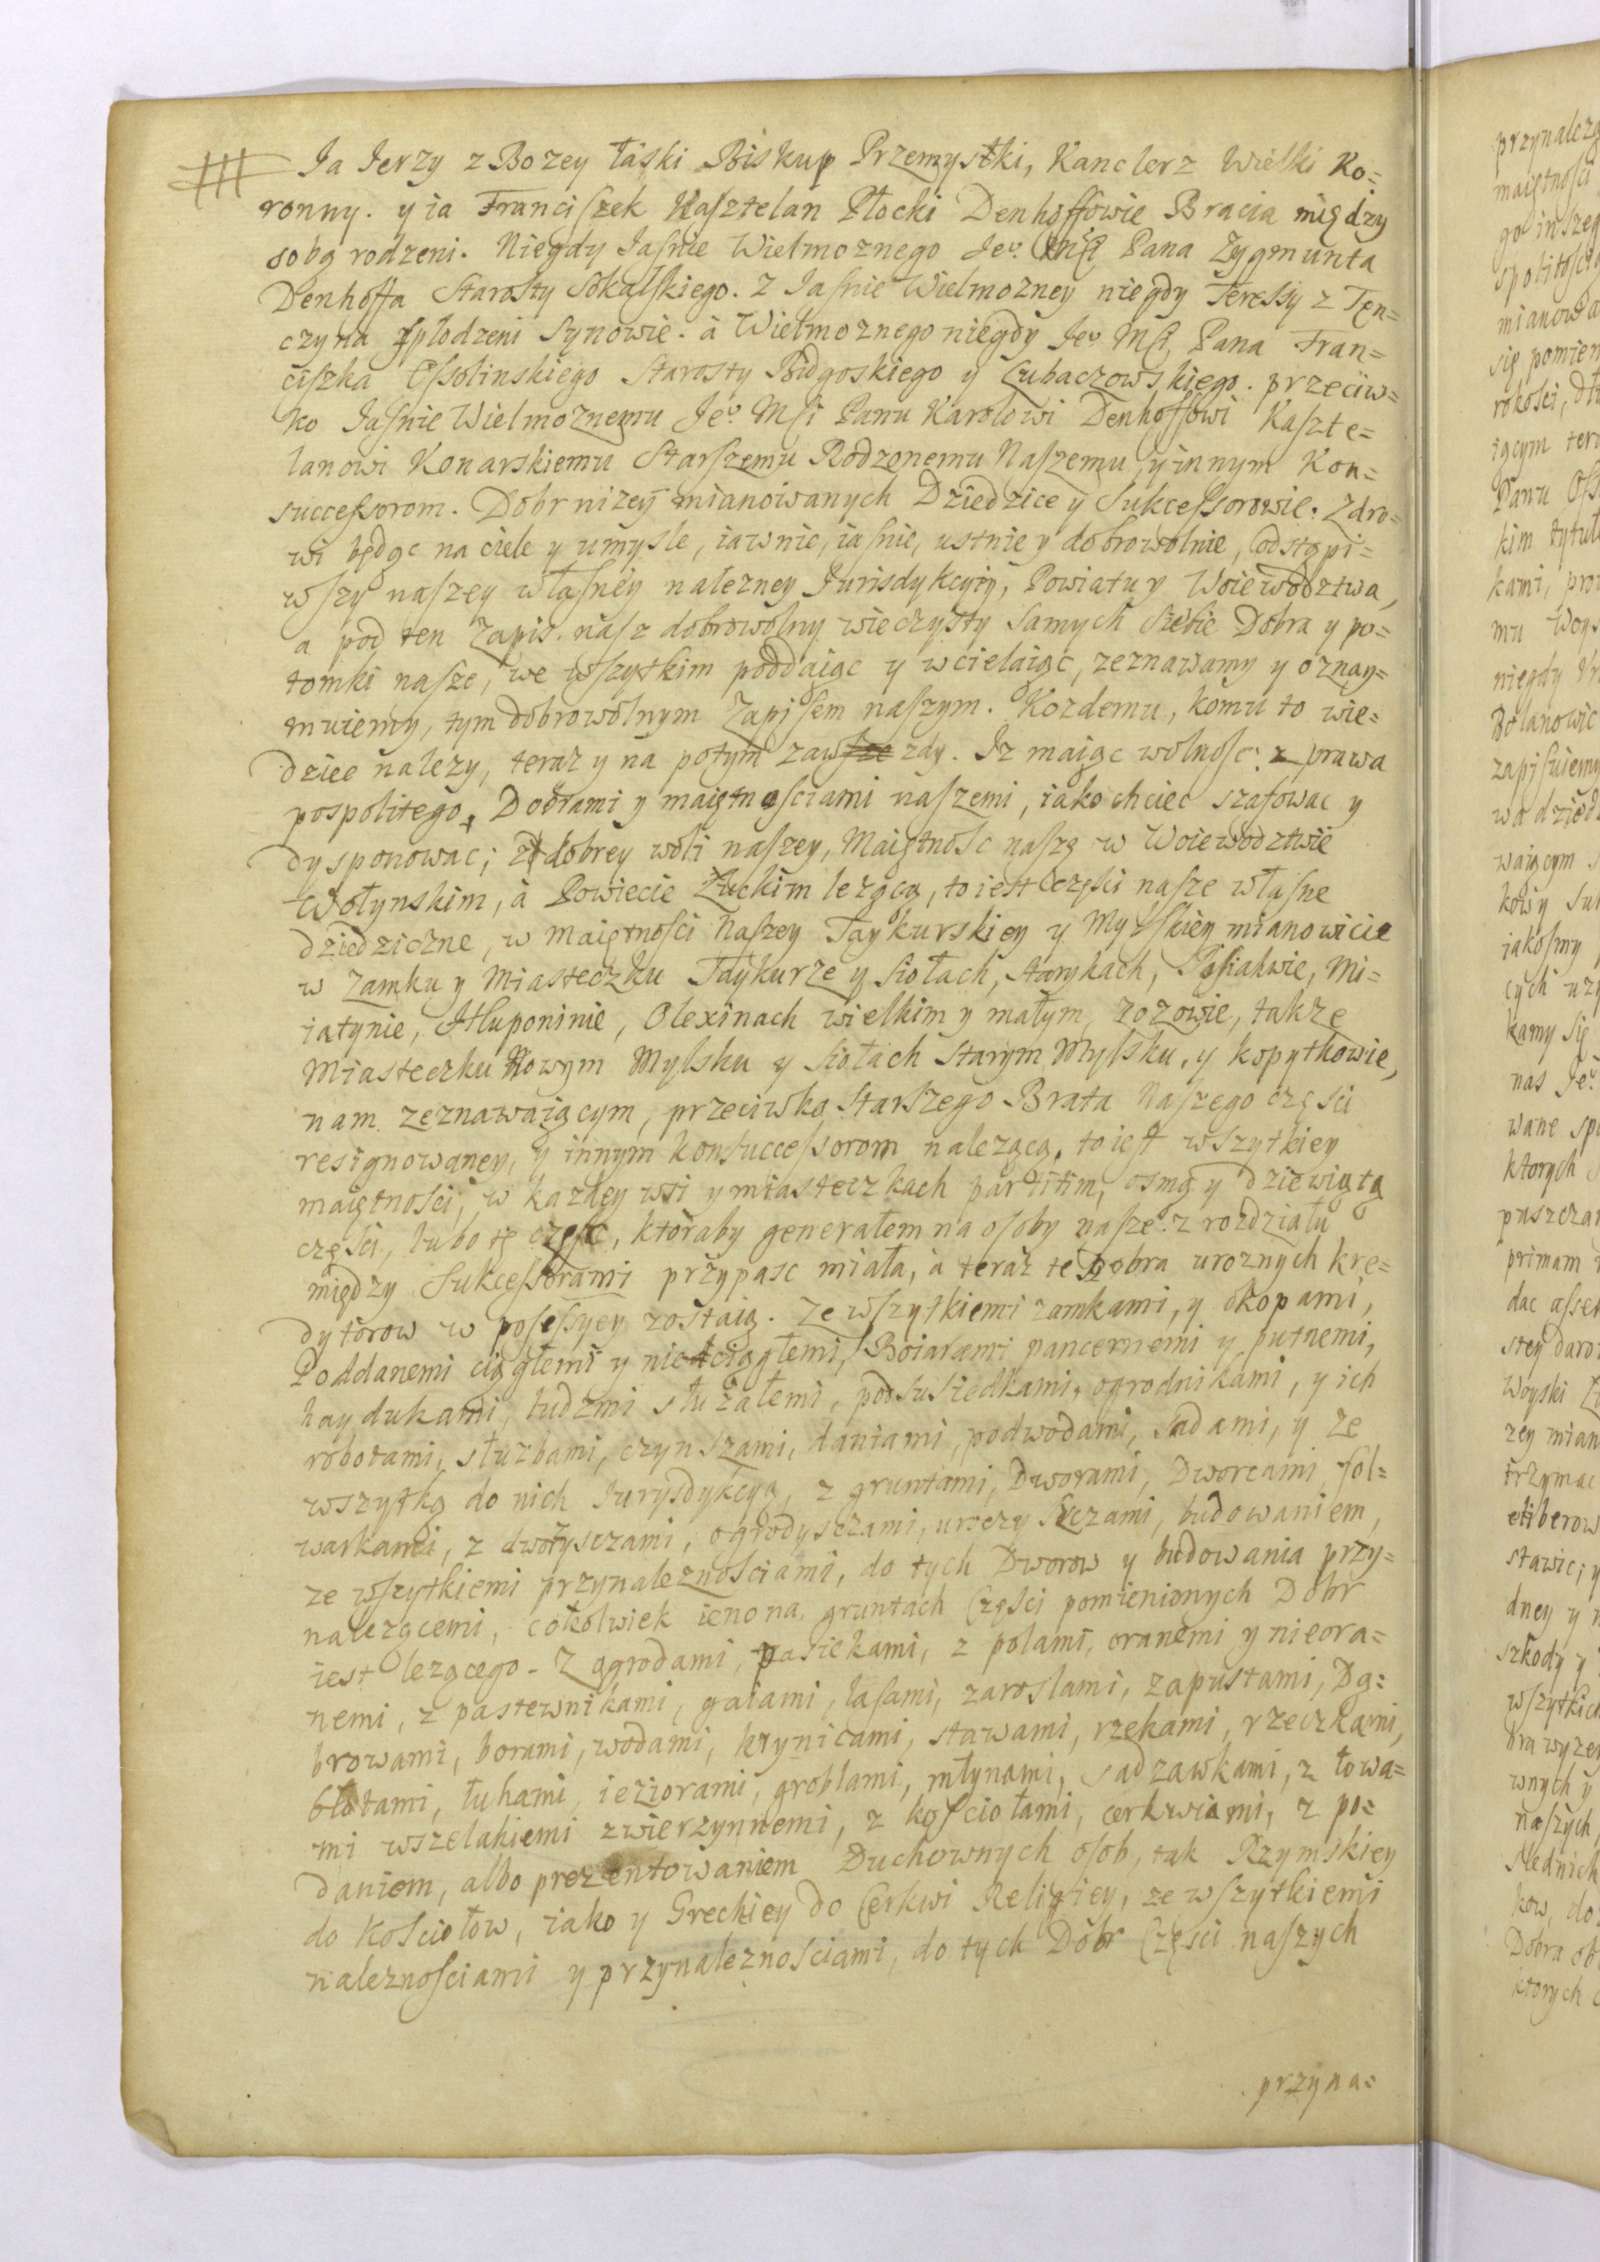 Ja Jerzy z Bozey łaski Biskup Przemyslki, Kanclerz Wielki Ko=
ronny. y ia Franciszek Kasztelan Płocki Denhoffowie Bracia między
sobą rodzeni. Niegdy Jasnie Wielmoznego Jeo Mśći Pana Zygmunta
Denhoffa Starosty Sokalskiego. Z Jasnie Wielmozney niegdy Teressy z Ten=
czyna spłodzeni Synowie. à Wielmoznego niegdy Jeo Mśći Pana Fran=
ciszka Ossolinskiego Starosty Bidgoskiego y Lubaczowskiego. przeciw=
ko Jasnie Wielmoznemu Jeo Mśći Panu Karolowi Denhoffowi Kaszte=
lanowi Konarskiemu Starszemu Rodzonemu Naszemu, y innym Kon=
successorom. Dobr nizey mianowanych Dziedzice y Sukcessorowie. Zdro=
wi będąc na ciele y umysle, iawnie, iasnie, ustnie y dobrowolnie, odstąpi=
wszy naszey własney nalezney Jurisdykcyiy, Powiatu y Woiewodztwa,
a pod ten Zapis nasz dobrowolny wieczysty samych siebie Dobra y po=
tomki nasze, we wszytkim poddaiąc y wcielaiąc, zeznawamy y oznay=
muiemy, tym dobrowolnym Zapisem naszym. Kozdemu, komu to wie=
dziec nalezy, teraz y na potym zawsze zdy. Iz maiąc wolnosc z prawa
pospolitego, Dobrami y maiętnosciami naszemi, iako chciec szafowac y
dysponowac; z dobrey woli naszey, Maiętnosc naszę w Woiewodztwie
Wołynskim, à Powiecie Łuckim lezącą, to iest części nasze własne
dziedziczne, w maiętności Naszey Taykurskiey y Mylskiey mianowicie
w Zamku y Miasteczku Taykurze y siołach, Starykach, Posiahwie, Mi=
iatynie, Hłuponinie, Olexinach wielkim y małym, Zozowie, także
Miasteczku Nowym Mylsku y siołach Starym Mylsku, y kopytkowie,
nam zeznawaiącym, przeciwko Starszego Brata Naszego części
resignowaney, y innym konsuccessorom nalezącą, to iest wszytkiey
maiętności, w kazdey wsi y miasteczkach partitim, osmą y dziewiątą
części, lubo tę częsc, ktoraby generałem na osoby nasze z rozdziału
między Sukcessorami przypasc miała, à teraz te Dobra uroznych kre=
dytorow w possessyey zostaią. Ze wszytkiemi zamkami, y okopami,
Poddanemi ciągłemi y nieciągłemi, Boiarami pancernemi y putnemi,
haydukami, ludzmi służałemi, podsusiedkami, ogrodnikami, y ich
robotami, służbami, czynszami, daniami, podwodami, sadami, y ze
wszytką do nich Jurysdykcyą, z gruntami, Dworami, Dworcami, fol=
warkami, z dworzysczami, ogrodysczami, urzeczysczami, budowaniem,
ze wszytkiemi przynaleznościami, do tych Dworow y budowania przy=
nalezącemi, cokolwiek ieno na gruntach Części pomienionych Dobr
iest lezącego. Z ogrodami, pasiekami, z polami, oranemi y nieora=
nemi, z pastewnikami, gaiami, lasami, zaroslami, zapustami, Dą=
browami, borami, wodami, krynicami, stawami, rzekami, rzeczkami,
błotami, łuhami, ieziorami, groblami, młynami, sadzawkami, z łowa=
mi wszelakiemi zwierzynnemi, z kościołami, cerkwiami, z po=
daniem, albo prezentowaniem Duchownych osob, tak Rzymskiey
do Kosciołow, iako y Greckiey do Cerkwi Religiey, ze wszytkiemi
naleznosciami y przynaleznosciami, do tych Dobr Części naszych
przyna=